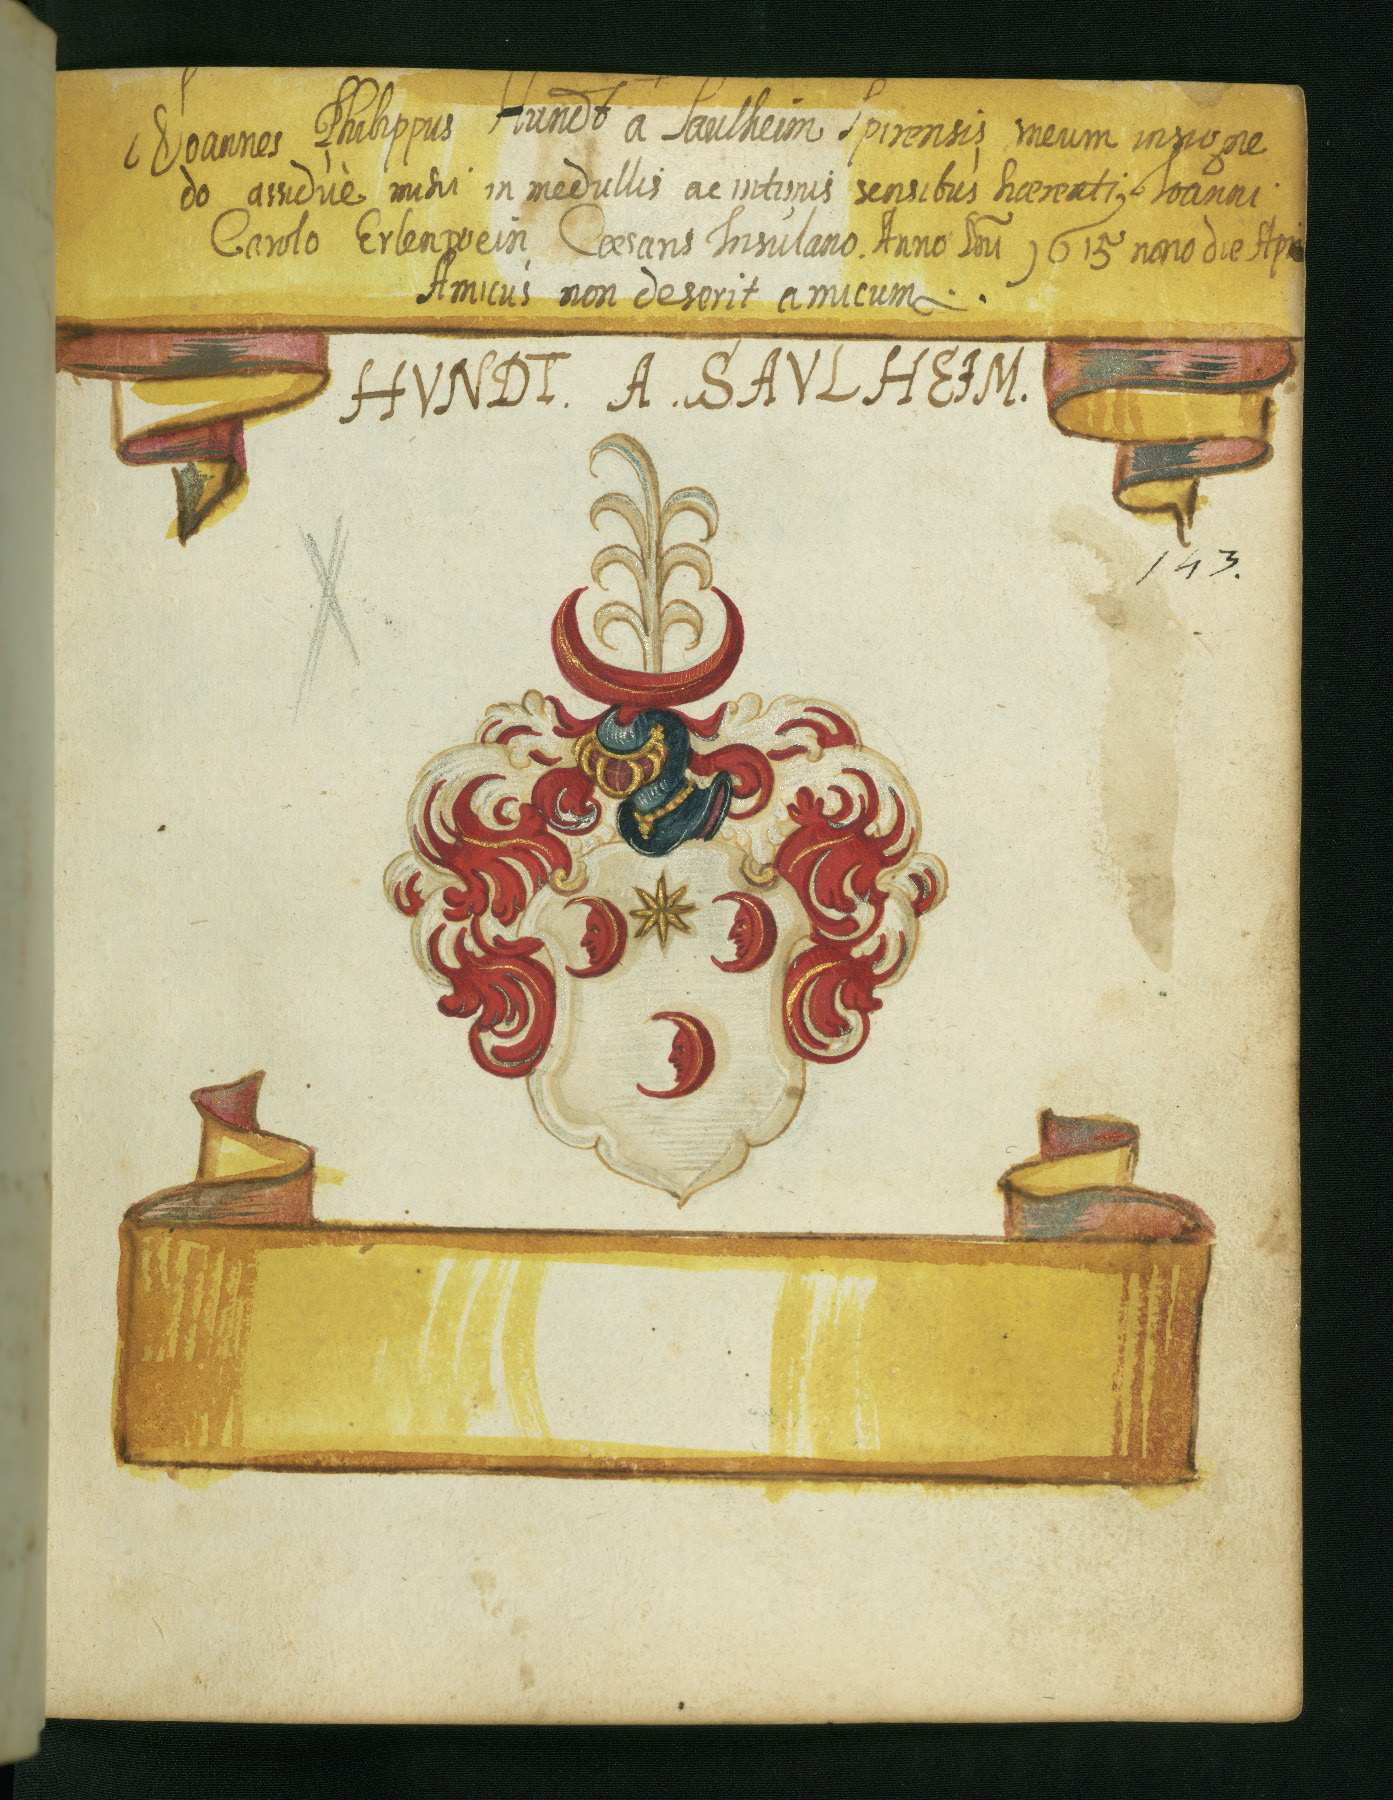 Joannes Philippus Hundt a Saulheim Spirensis meum insigne
do assiduè mihi in medullis ac intimis sensibus hærenti, Ioanni
Carolo Erlenwein Cæsaris Insulano. Anno Dni 1615 nono die Apri
Amicus non deserit amicum.
HVNDT. A. SAVLHEIM.
143.